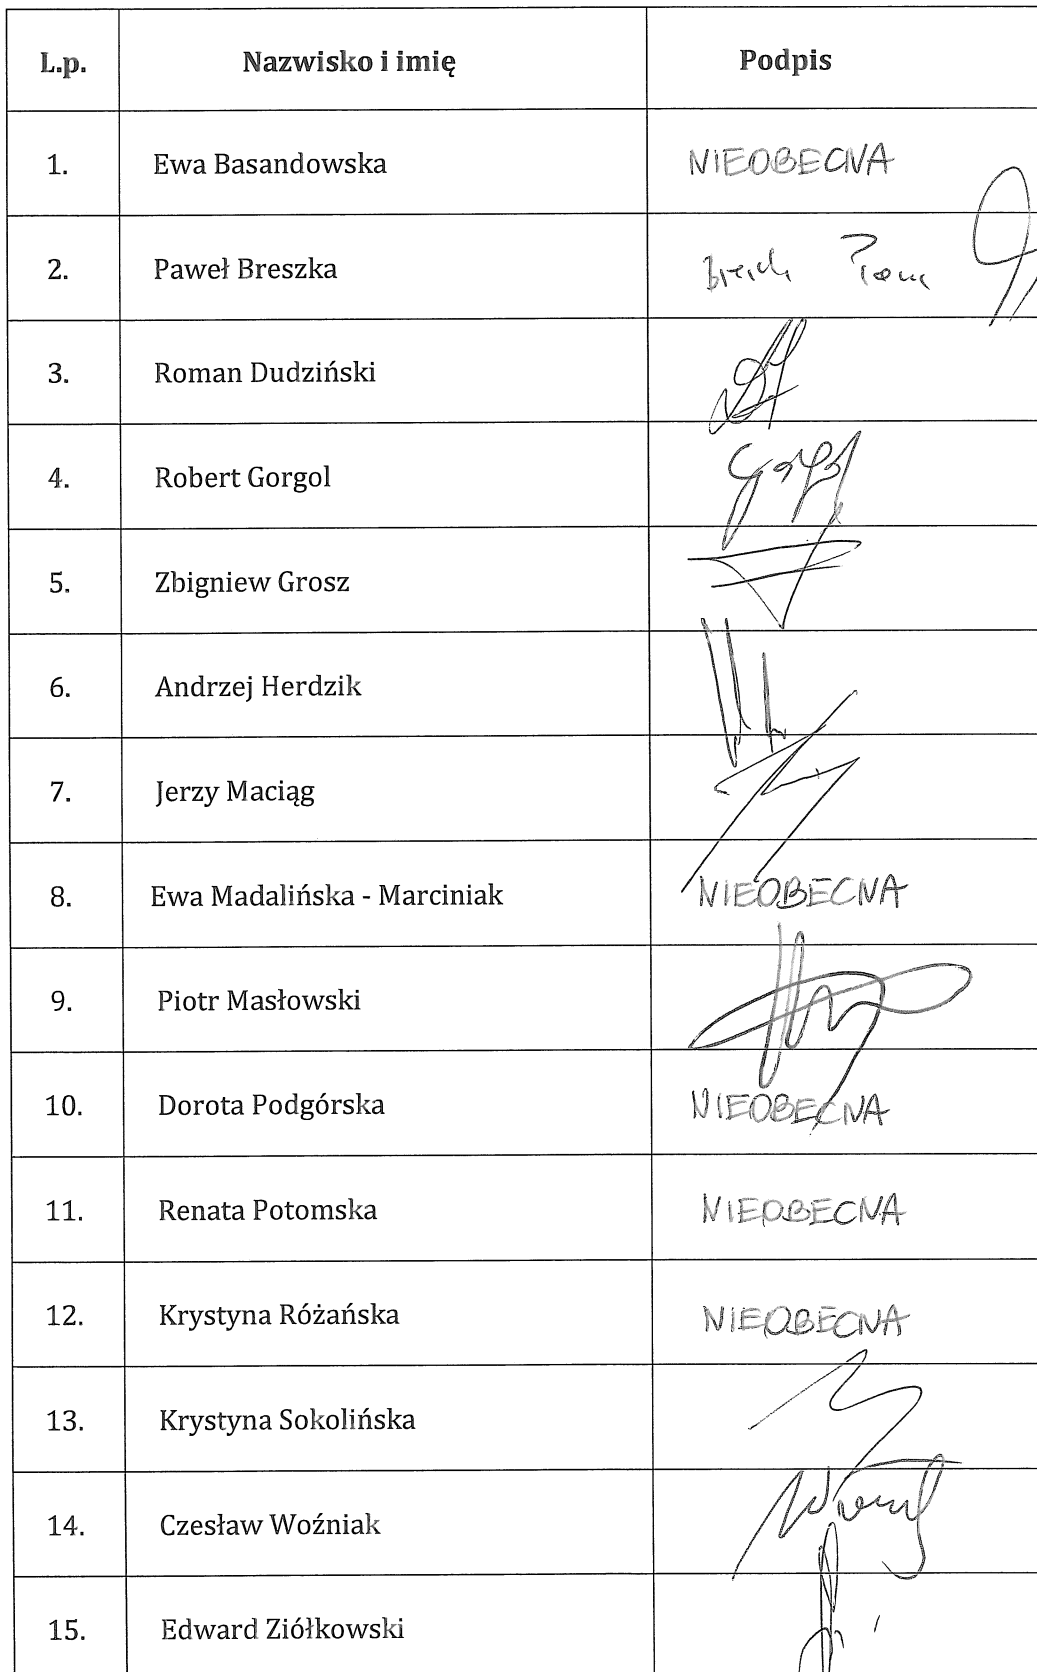 L.p. Nazwisko i imię Podpis
1. Ewa Basandowska NIEOBECNA
2. Paweł Breszka
3. Roman Dudziński
4. Robert Gorgol Gorgol
5. Zbigniew Grosz
6. Andrzej Herdzik
7. Jerzy Maciąg
8. Ewa Madalińska - Marciniak NIEOBECNA
9. Piotr Masłowski
10. Dorota Podgórska NIEOBECNA
11. Renata Potomska NIEOBECNA
12. Krystyna Różańska NIEOBECNA
13. Krystyna Sokolińska
14. Czesław Woźniak
15. Edward Ziółkowski